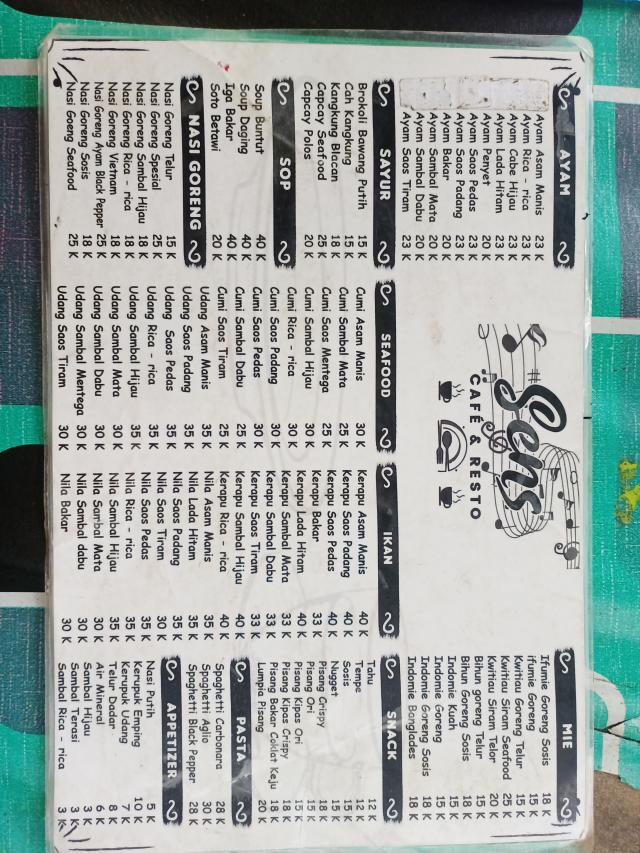 AYAM
Ayam Asam Manis 23 K
Ayam Rica - rica 23 K
Ayam Cabe Hijau 23 K
Ayam Lada Hitam 23 K
Ayam Penyet 20 K
Ayam Saos Pedas 23 K
Ayam Saos Padang 23 K
Ayam Bakar 20 K
Ayam Sambal Mata 20 K
Ayam Sambal Dabu 20 K
Ayam Saos Tiram 23
SAYUR
Brokoli Bawang Putih 15 K
Cah Kangkung 15 K
Kangkung Blacan 18 K
Capcay Seafood 25 K
Capcay Polos 20 K
SOP
Soup Buntut 40 K
Soup Daging 40 K
Iga Bakar 40 K
Soto Betawi 20 K
NASI GORENG
Nasi Goreng Telur 15 K
Nasi Goreng Spesial 25 K
Nasi Goreng Sambal Hijau 18 K
Nasi Goreng Rica - rica 18 K
Nasi Goreng Vietnam 18 K
Nasi Goreng Ayam Black Pepper 25 K
Nasi Goreng Sosis 18 K
Nasi Goeng Seafood 25 K
Sens
CAFÉ & RESTO
SEAFOOD
Cumi Asam Manis 30 K
Cumi Sambal Mata 25 K
Cumi Saos Mentega 25 K
Cumi Sambal Hijau 30 K
Cumi Rica - rica 30 K
Cumi Saos Padang 30 K
Cumi Saos Pedas 30 K
Cumi Sambal Dabu 25 K
Cumi Saos Tiram 25 K
Udang Asam Manis 35 K
Udang Saos Padang 35 K
Udang Saos Pedas 35 K
Udang Rica - rica 35 K
Udang Sambal Hijau 35 K
Udang Sambal Mata 30 K
Udang Sambal Dabu 30 K
Udang Sambal Mentega 30 K
Udang Saos Tiram 30 K
IKAN
Kerapu Asam Manis 40 K
Kerapu Saos Padang 40 K
Kerapu Saos Pedas 40 K
Kerapu Bakar 33 K
Kerapu Lada Hitam 40 K
Kerapu Sambal Mata 33 K
Kerapu Sambal Dabu 33 K
Kerapu Saos Tiram 33 K
Kerapu Sambal Hijau 40 K
Kerapu Rica - rica 40 K
Nila Asam Manis 35 K
Nila Lada Hitam 35 K
Nila Saos Padang 35 K
Nila Saos Tiram 30 K
Nila Saos Pedas 35 K
Nila Rica - rica 35 K
Nila Sambal Hijau 35 K
Nila Sambal Mata 30 K
Nila Sambal dabu 30 K
Nila Bakar 30 K
MIE
Ifumie Goreng Sosis 18 K
ifumie Goreng 15 K
Kwitiau Goreng Telur 15 K
Kwitiau Siram Seafood 25 K
Kwitiau Siram Telor 20 K
Bihun goreng Telur 15 K
Bihun Goreng Sosis 18 K
Indomie Kuah 15 K
Indomie Goreng 15 K
Indomie Goreng Sosis 18 K
Indomie Banglades 18 K
SNACK
Tahu 12 K
Tempe 15 K
Sosis 15 K
Nugget 15 K
Pisang Crispy 18 K
Pisang Ori 15 K
Pisang Kipas Ori 15 K
Pisang Kipas Crispy 18 K
Pisang Bakar Coklat Keju 18 K
Lumpia Pisang 20 K
PASTA
Spaghetti Carbonara 28 K
Spaghetti Aglio 30 K
Spaghetti Black Pepper 28 K
APPETIZER
Nasi Putih 5 K
Kerupuk Emping 10 K
Kerupuk Udang 7 K
Telur Dadar 8 K
Air Mineral 6 K
Sambal Hijau 3 K
Sambal Terasi 3 K
Sambal Rica - rica 3 K